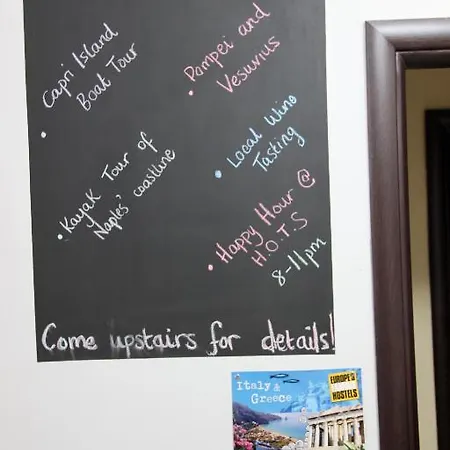 • Capri Island
Boat Tour
• Pompei and
Vesuvius
• Kayak Tour of
Naples' coastline
• Local Wine
Tasting
• Happy Hour @
H.O.T.S
8-11pm
Come upstairs for details!
Italy &
Greece
EUROPE'S
HOSTELS